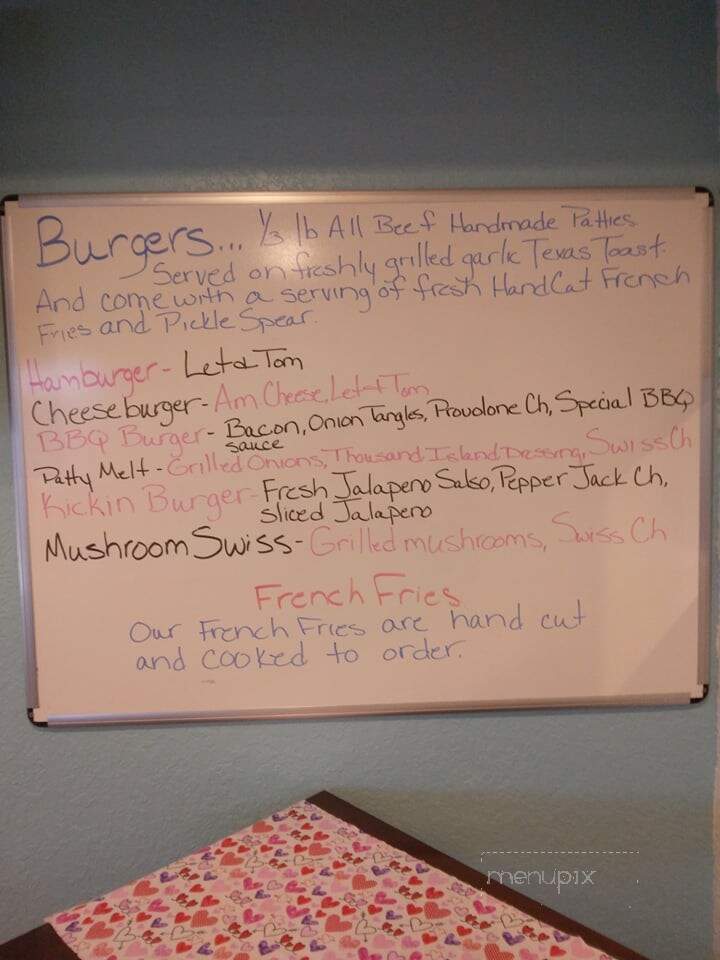 Burgers... 1/3 lb All Beef Handmade Patties
Served on freshly grilled garlic Texas Toast.
And come with a serving of fresh HandCut French
Fries and Pickle Spear.
Hamburger - Let & Tom
Cheeseburger - Am Cheese, Let & Tom
BBQ Burger - Bacon, Onion Tangles, Provolone Ch, Special BBQ
sauce
Patty Melt - Grilled Onions, Thousand Island Dressing, Swiss Ch
Kickin Burger - Fresh Jalapeno Salsa, Pepper Jack Ch,
sliced Jalapeno
Mushroom Swiss - Grilled mushrooms, Swiss Ch
French Fries
Our French Fries are hand cut
and cooked to order.
menupix